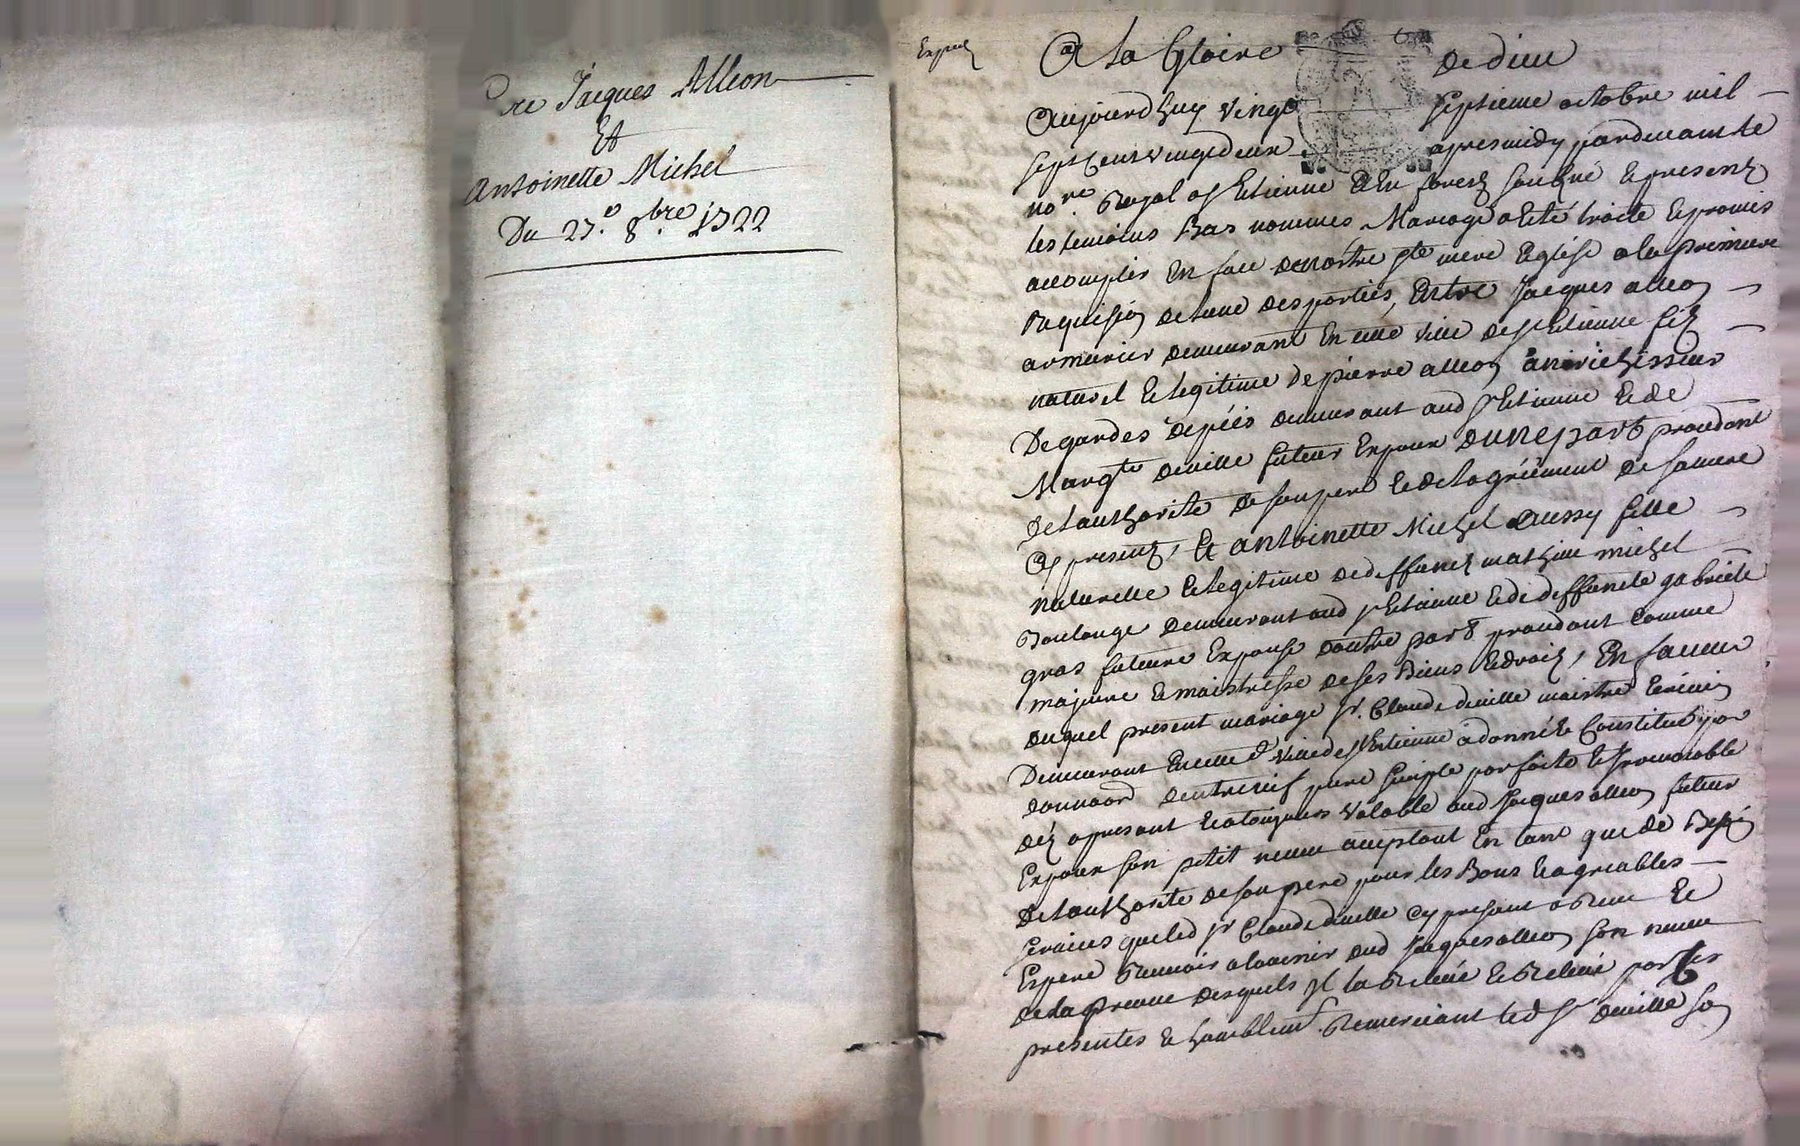 Jacques Alleon
Et
Antoinette Michel
Du 27.e 8.bre 1722
A la Gloire de dieu
Aujourd huy vingt septieme octobre mil
sept cent vingt deux apres midy pardevant le
no.re Royal a st Etienne En forest soubsigné et presents
les temoins Bas nommés Mariage a esté traité et promis
accomplir En face de nostre ste mere Eglise a la premiere
requisi͠on de l'une des parties, Entre Jacques alleon
armurier demeurant En cette ville de st Etienne fils
naturel et legitime de pierre alleon anrichisseur
De gardes depées demeurant aud st Etienne et de
Margte deville futeur Expoux dune part procedant
de l'authorité de son pere et de lagréément de sa mere
Cy presents, Et antoinette Michel aussy fille
naturelle et legitime de deffunct mathieu michel
Boulanger demeurant aud st Etienne et de deffuncte gabrielle
gras future Expouse dautre part procedant comme
majeure et maistresse de ses Biens et droits, En faveur
duquel present mariage sr. Claude deville maistre
Demeurant En cette d. ville de st Etienne a donné et Constitué par
donnaon dentre vif pure simple parfaite et Irrevocable
dés apresent et a tousjours valable aud Jacques alleon futeur
Expoux son petit neveu acceptant En tant que de Besoin
De l'authorité de son pere pour les Bons et agreables
services que led sr Claude deville cy present a Receu et
Espere Recevoir a l'avenir dud Jacques alleon son neveu
de la preuve desquels Il la Relevé et Releve par ces
presentes et humblemt. Remerciant led sr deville son